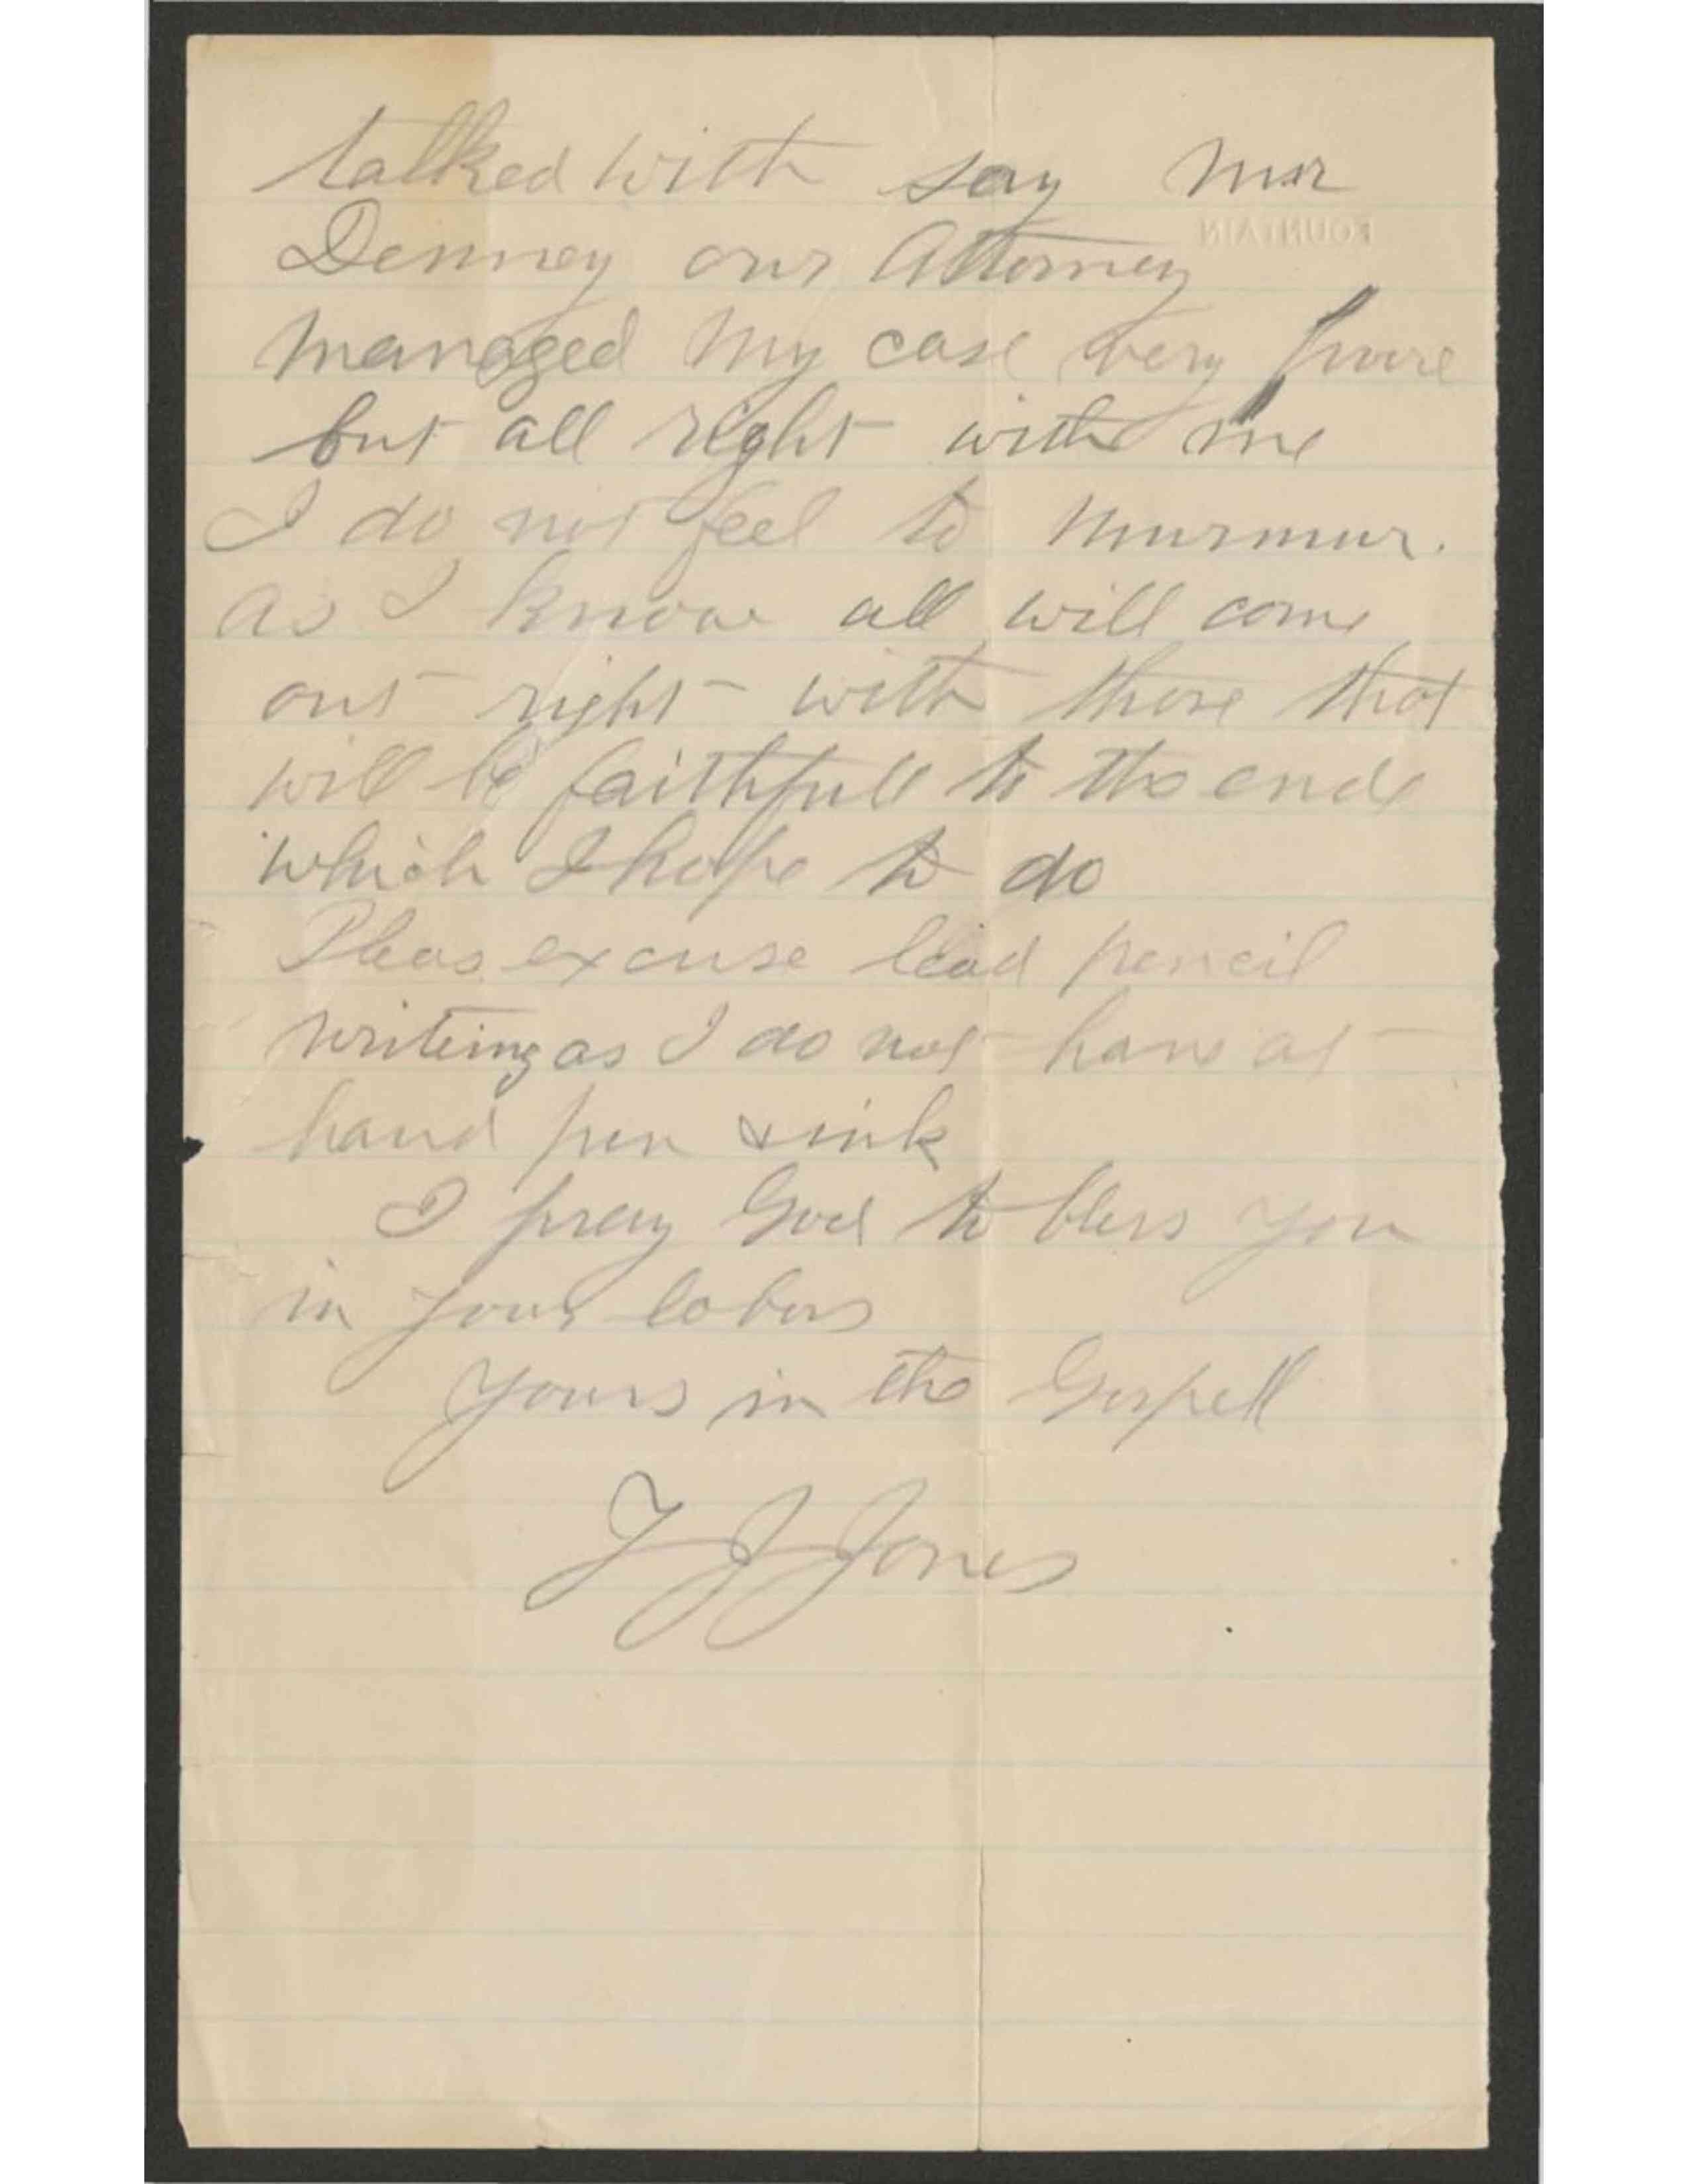 talked with say Mr
FOUNTAIN
Denney our Attorney
managed my case very poore
but all right with me
I do not feel to murmur.
as I know all will come
out right with those that
will be faithfull to the end
which I hope to do
Pleas excuse lead pencil
writeing as I do not have at
hand pen & ink
I pray God to bless you
in your labors
Yours in the Gospell
T J Jones